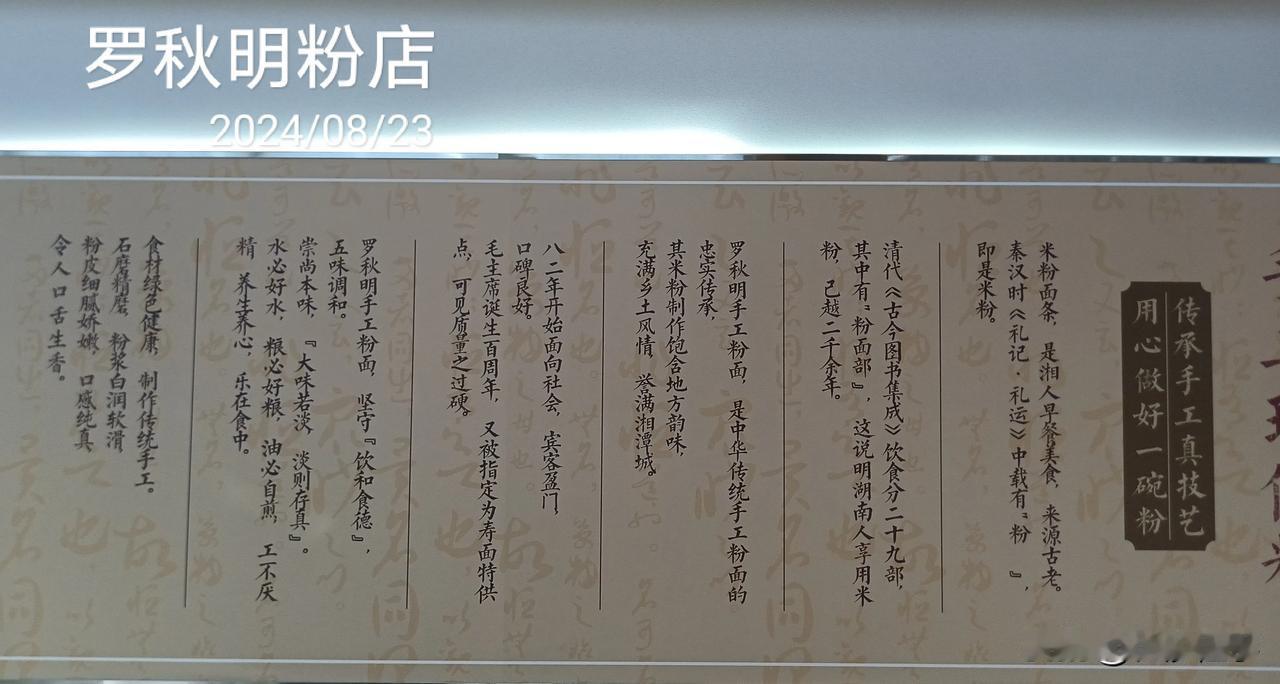 罗秋明粉店
2024/08/23
传承手工真技艺
用心做好一碗粉
米粉面条，是湘人早餐美食，来源古老。
秦汉时《礼记·礼运》中载有“粉 』，
即是米粉。
清代《古今图书集成》饮食分二十九部，
其中有“粉面部』，这说明湖南人享用米
粉，已越二千余年。
罗秋明手工粉面，是中华传统手工粉面的
忠实传承，
其米粉制作饱含地方韵味，
充满乡土风情，誉满湘潭城。
八二年开始面向社会，宾客盈门，
口碑良好。
毛主席诞生百周年，又被指定为寿面特供
点，可见质量之过硬。
罗秋明手工粉面，坚守『饮和食德』，
五味调和。
崇尚本味，『大味若淡，淡则存真』。
水必好水，粮必好粮，油必自煎，工不厌
精 养生养心，乐在食中。
食材绿色健康，制作传统手工。
石磨精磨，粉浆白润软滑，
粉皮细腻娇嫩，口感纯真
令人口舌生香。